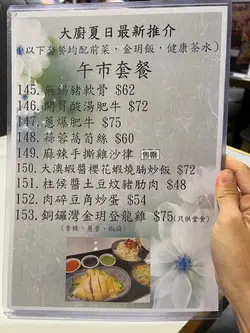 大廚夏日最新推介
(以下套餐均配前菜，金玥飯，健康茶水)
午市套餐
145. 無錫豬軟骨 $62
146. 開胃酸湯肥牛 $72
147. 蔥爆肥牛 $75
148. 蒜蓉萵筍絲 $60
149. 麻辣手撕雞沙律 售罄
150. 大澳蝦醬櫻花蝦燒腩炒飯 $72
151. 柱侯醬土豆炆豬肋肉 $48
152. 肉碎豆角炒蛋 $54
153. 銅鑼灣金玥登龍雞 $75(只供堂食)
(香辣、蔥香、椒麻)